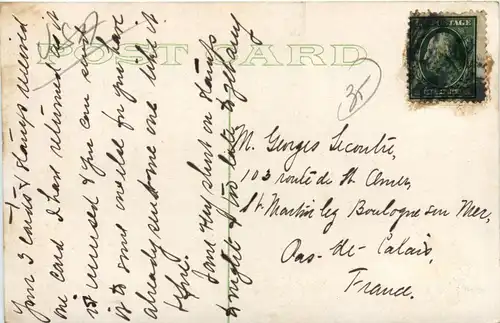 POST CARD
35
Your 3 cards & stamps received
one card I have returned as it
is unused & you can sell
it to some one else for you have
already sent me one like it
before.
I am very short on stamps
tonight & too late to get any
M. Georges Lecoutre,
103 route de St Omer,
St. Martin leg Boulogne sur Mer,
Pas-de-Calais,
France.